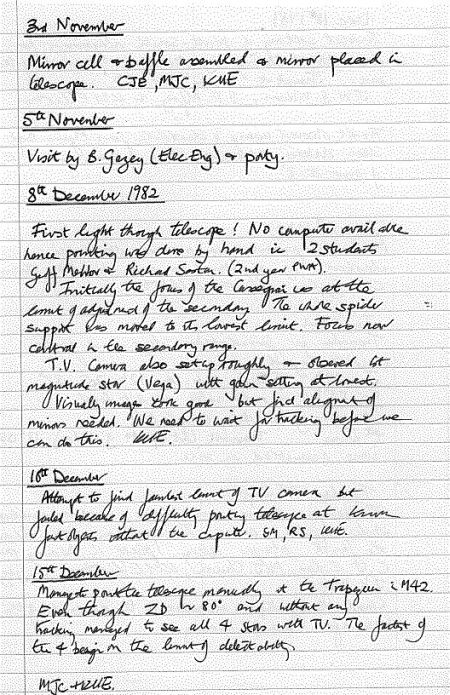 3rd November
Mirror cell + baffle assembled & mirror placed in
telescope. CJE, MJC, KME
5th November
Visit by B. Gezey (Elec Eng) + party.
8th December 1982
First light through telescope! No computer available
hence pointing was done by hand ie 2 students
Geoff & Richard (2nd year).
Initially the focus of the Cassegrain was at the
limit of adjustment of the secondary. The whole spider
support was moved to its lowest limit. Focus now
central in the secondary range.
T.V. Camera also set up roughly + observed 1st
magnitude star (Vega) with gain setting at lowest.
Visually images look good but final alignment of
mirrors needed. We need to wait for tracking before we
can do this. KME.
10th December
Attempt to find faintest limit of TV camera but
failed because of difficulty pointing telescope at known
faint objects without the computer. GM, RS, KME.
15th December
Managed to point the telescope manually at the Trapezium in M42.
Even though ZD ~ 80° and without any
tracking managed to see all 4 stars with TV. The faintest of
the 4 being on the limit of detectability.
MJC + KME.